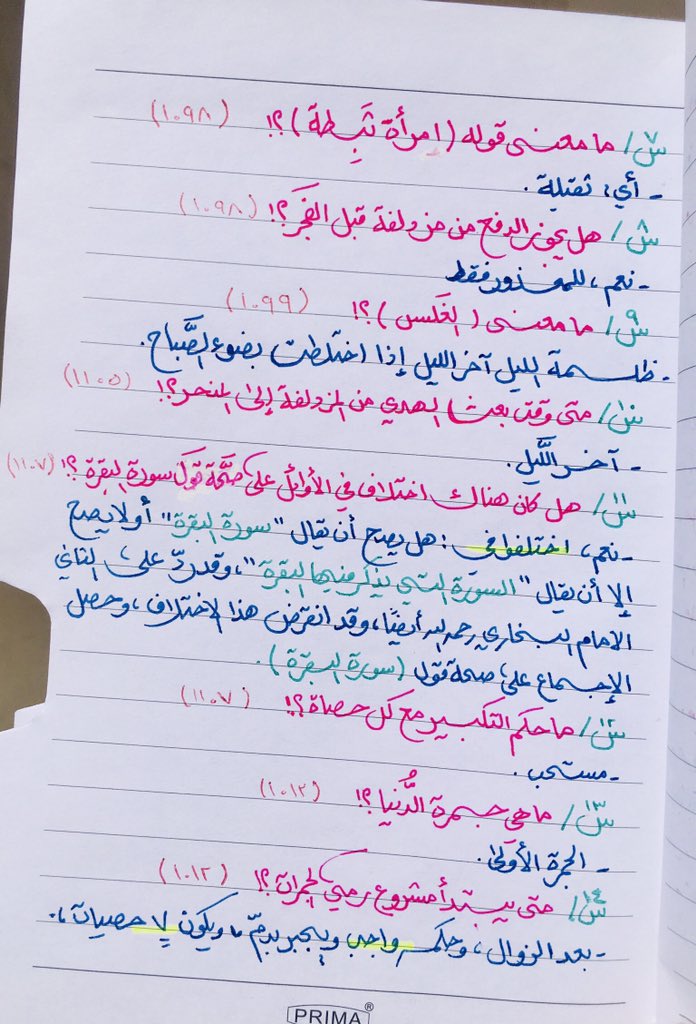 س٧/ ما معنى قوله (امرأة ثَبِطة)؟! (١٠٩٨)
- أي، ثقيلة.
س٨/ هل يجوز الدفع من مزدلفة قبل الفجر؟! (١٠٩٨)
- نعم، للمعذور فقط
س٩/ ما معنى (الغَلَس)؟! (١٠٩٩)
- ظلمة الليل آخر الليل إذا اختلطت بضوء الصَّباح.
س١٠/ متى وقت بعث الهدي من المزدلفة إلى المنحر؟! (١١٠٥)
- آخر اللَّيل.
س١١/ هل كان هناك اختلاف في الأوائل على صحَّة قول سورة البقرة؟! (١١٠٧)
- نعم، اختلفوا في: هل يصح أن يقال "سورة البقرة" أو لا يصح
إلا أن يقال "السورة التي يذكر فيها البقرة"، وقد ردّ على الثاني
الامام البخاري رحمه الله أيضًا، وقد انقرض هذا الاختلاف، وحصل
الإجماع على صحة قول (سورة البقرة).
س١٢/ ما حكم التكبير مع كل حصاة؟! (١١٠٧)
- مستحب.
س١٣/ ما هي جمرة الدُّنيا؟! (١٠١٢)
- الجمرة الأولى.
س١٤/ متى يبتدأ مشروع رمي الجمرات؟! (١٠١٢)
- بعد الزوال، وحكمه واجب ويجبر بدمّ، ويكون ٧ حصيات،.
PRIMA®